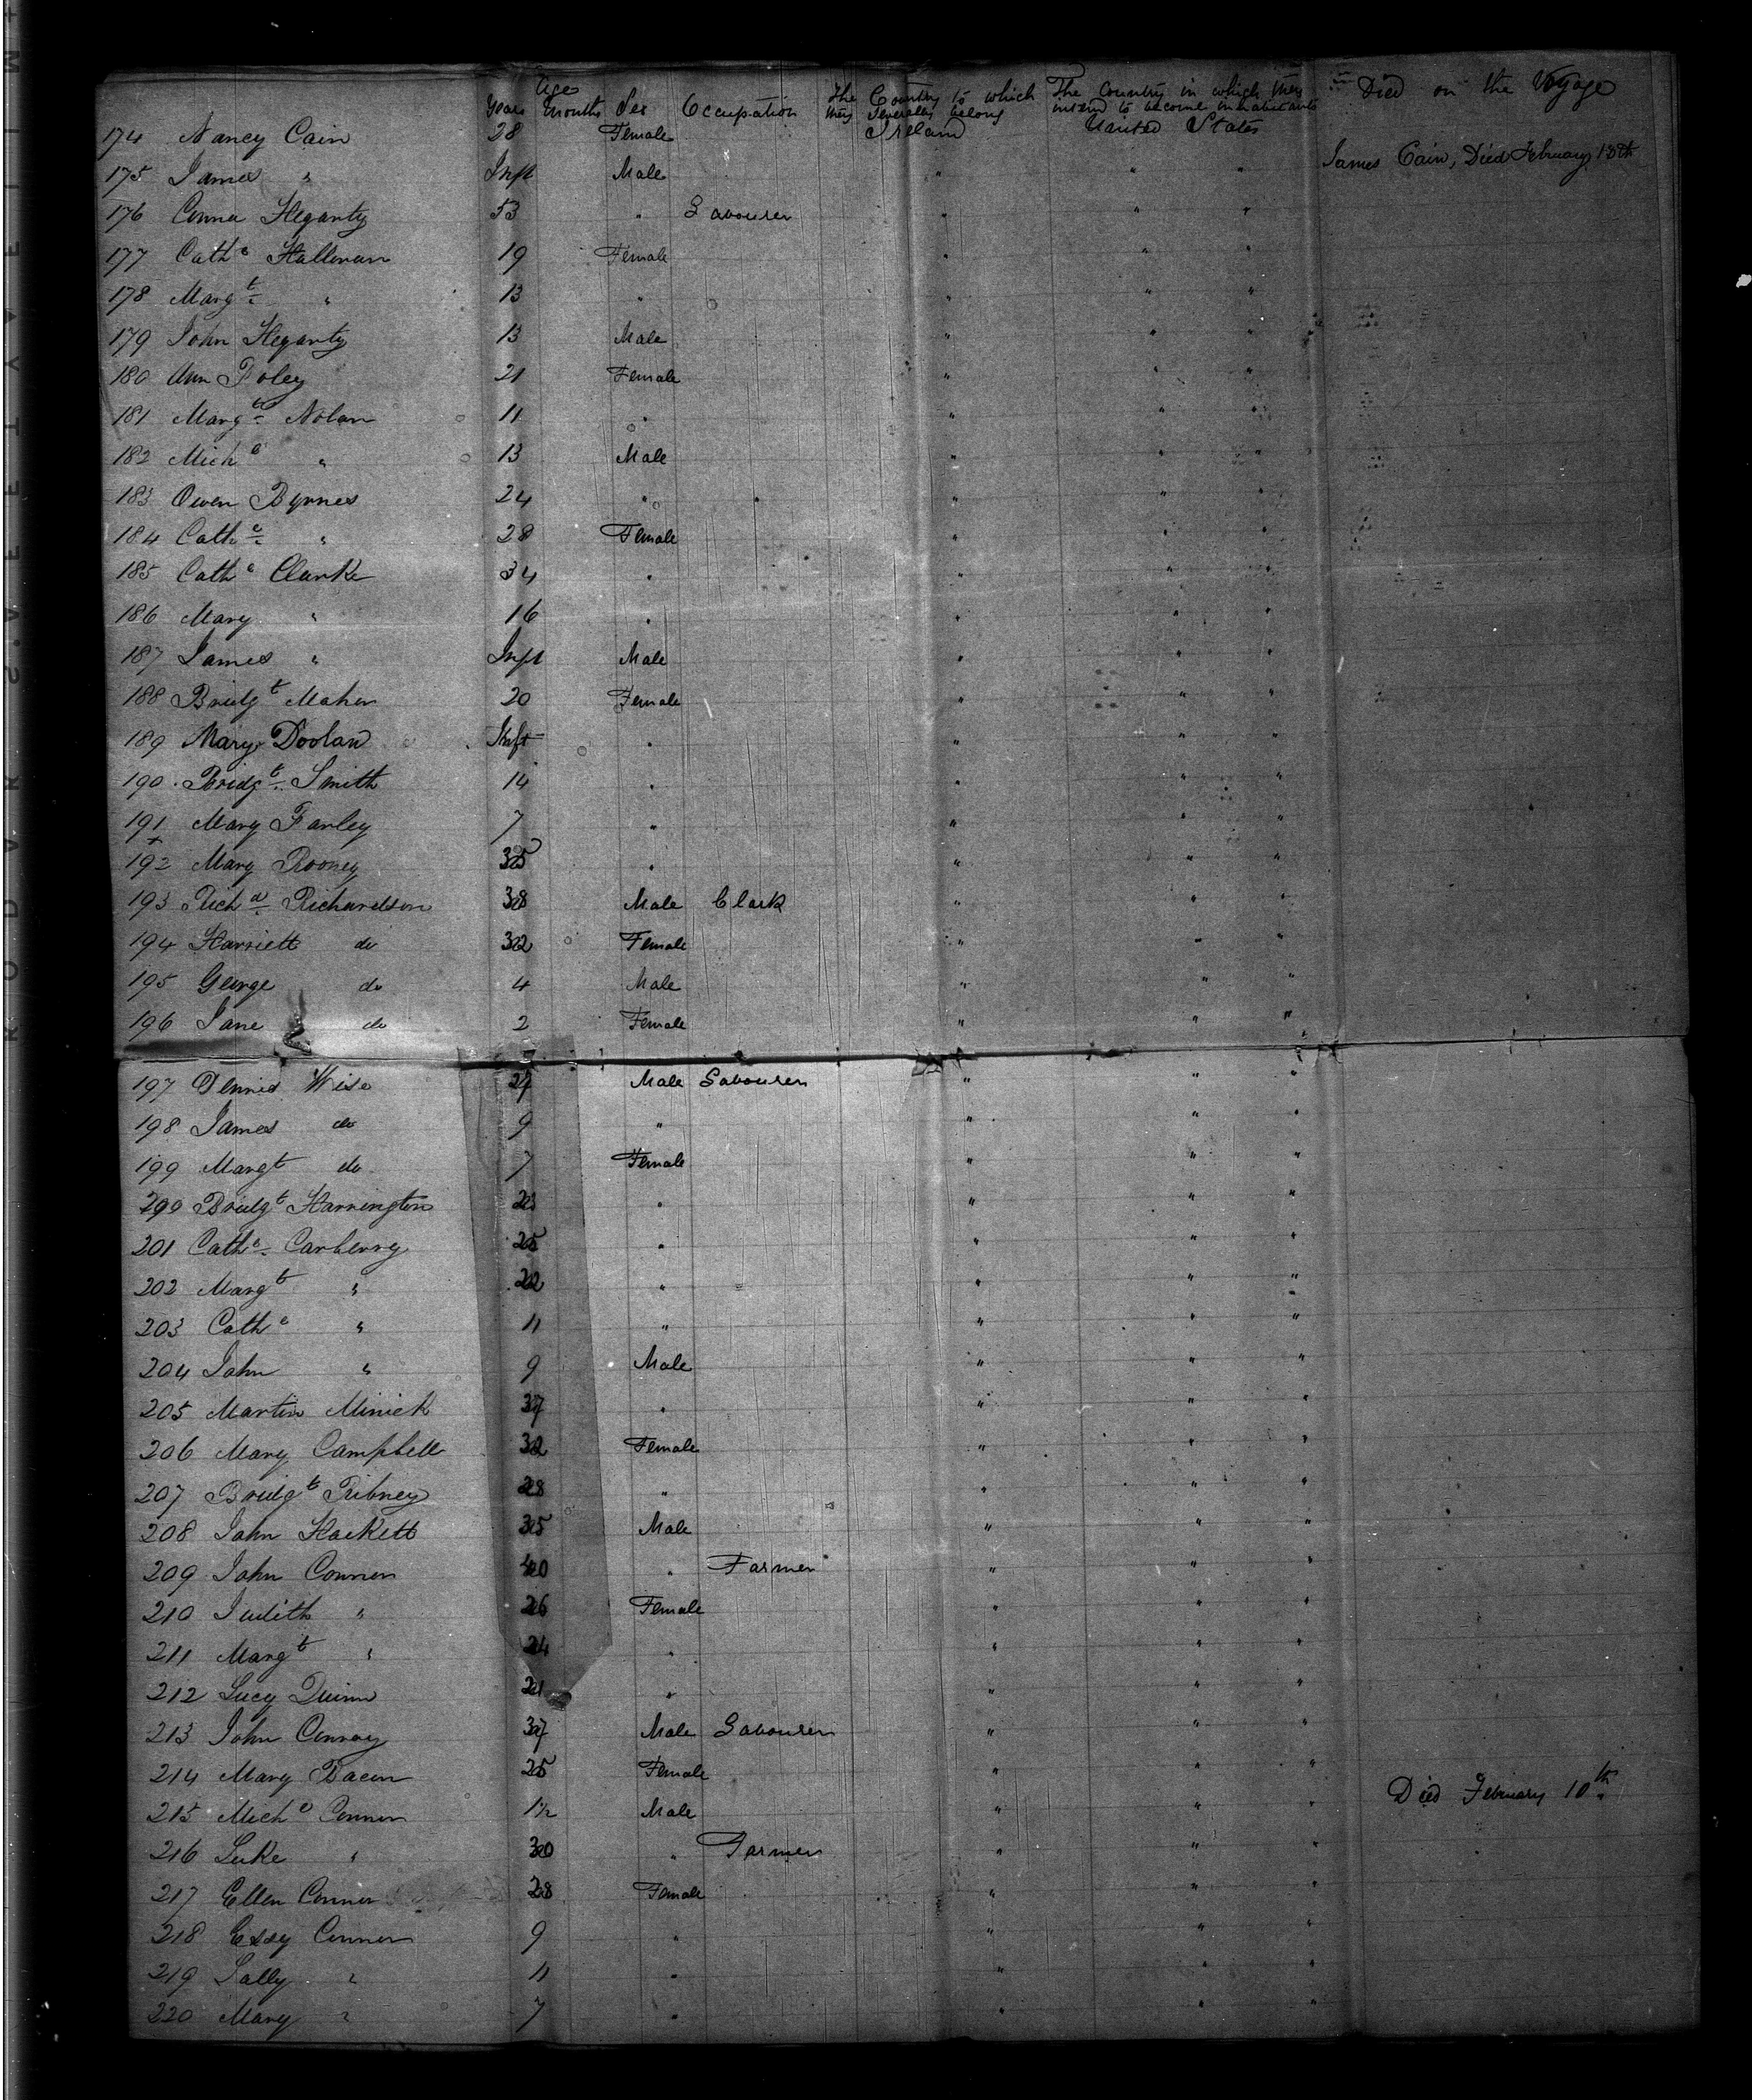 Age
Years Months Sex Occupation The Country to which they severally belong The Country in which they intend to become inhabitants Died on the Voyage
174 Nancy Cain 28 Female Ireland United States
175 James " Inft Male " " " James Cain, Died February 13th
176 Connor Hegarty 53 " Labourer " " "
177 Cathe Halloran 19 Female " " "
178 Margt " 13 " " " "
179 John Hegarty 13 Male " " "
180 Ann Foley 21 Female " " "
181 Margt Nolan 11 " " " "
182 Michl " 13 Male " " "
183 Owen Byrnes 24 " " " " "
184 Cathe " 28 Female " " "
185 Cathe Clarke 34 " " " "
186 Mary " 16 " " " "
187 James " Inft Male " " "
188 Bridgt Maher 20 Female " " "
189 Mary Doolan Inft " " " "
190 Bridgt Smith 14 " " " "
191 Mary Farley 7 " " " "
192 Mary Rooney 35 " " " "
193 Richd Richardson 38 Male Clark " " "
194 Harriett do 32 Female " " "
195 George do 4 Male " " "
196 Jane do 2 Female " " "
197 Dennis Wise 27 Male Labourer " " "
198 James do 9 " " " "
199 Margt do 7 Female " " "
200 Bridgt Harrington 23 " " " "
201 Cathe Carberry 25 " " " "
202 Margt " 22 " " " "
203 Cathe " 11 " " " "
204 John " 9 Male " " "
205 Martin Minick 37 " " " "
206 Mary Campbell 32 Female " " "
207 Bridgt Ribney 28 " " " "
208 John Hackett 35 Male " " "
209 John Connor 40 " Farmer " " "
210 Judith " 26 Female " " "
211 Margt " 24 " " " "
212 Lucy Quinn 21 " " " "
213 John Conroy 37 Male Labourer " " "
214 Mary Bacon 25 Female " " "
215 Michl Connor 1½ Male " " " Died February 10th
216 Luke " 30 " Farmer " " "
217 Ellen Connor 28 Female " " "
218 Essy Connor 9 " " " "
219 Sally " 11 " " " "
220 Mary " 7 " " " "